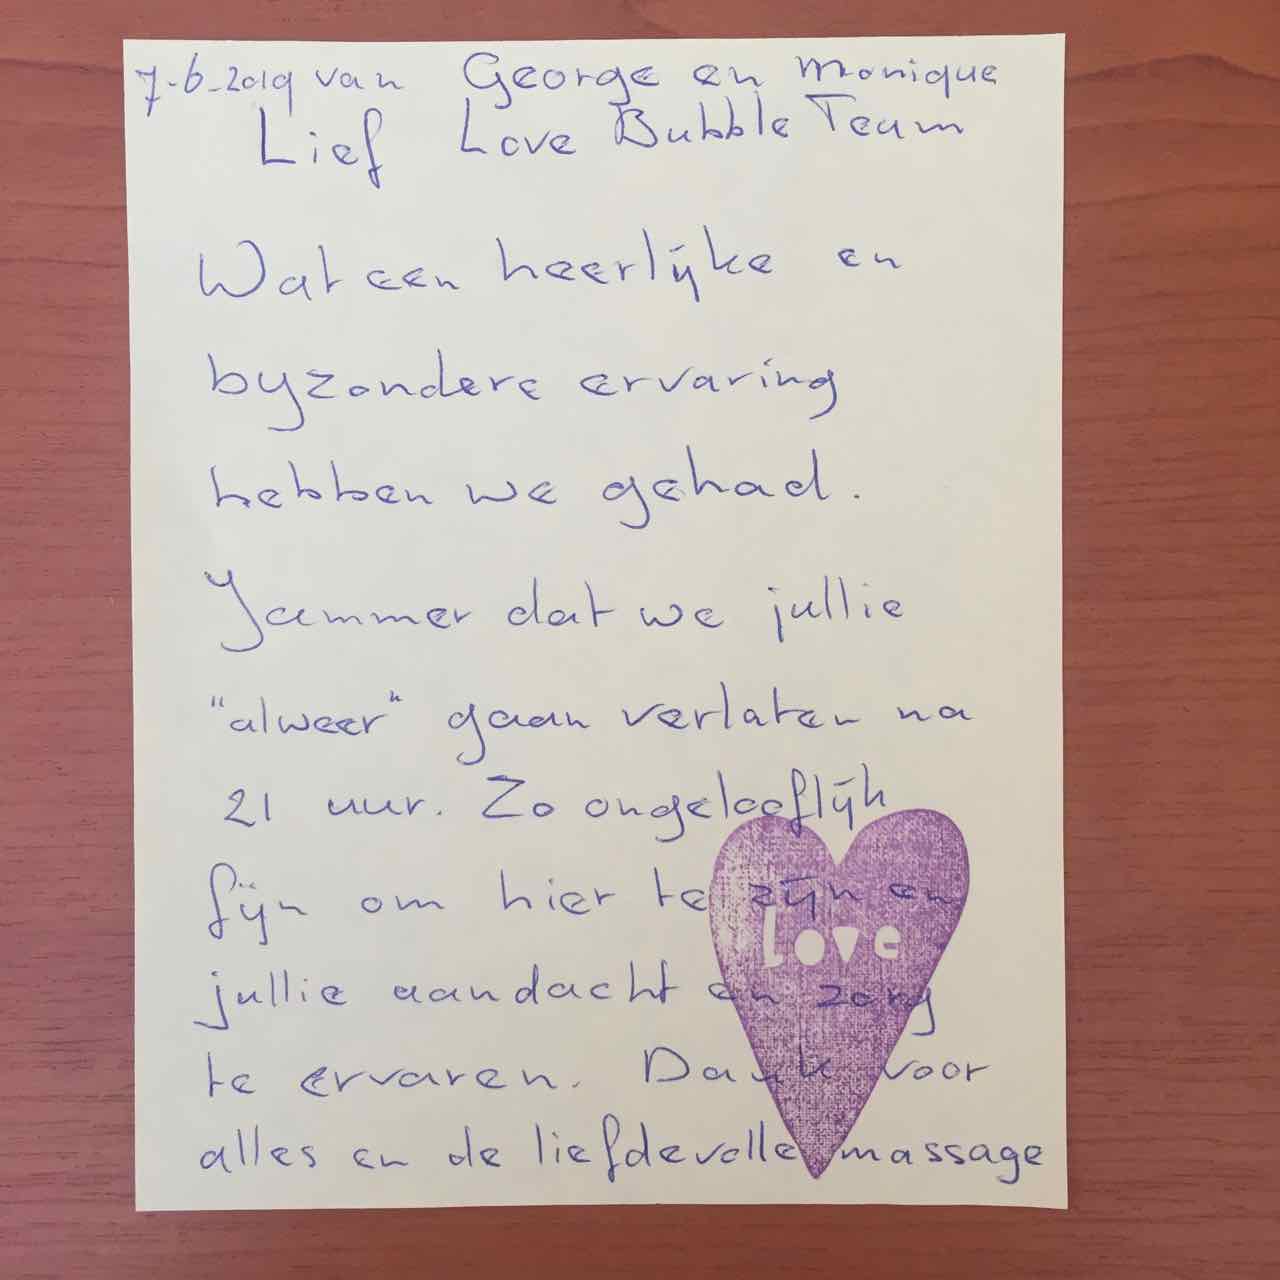 7-6-2019 van George en Monique
Lief Love Bubble Team
Wat een heerlijke en
byzondere ervaring
hebben we gehad.
Jammer dat we jullie
"alweer" gaan verlaten na
21 uur. Zo ongelooflijk
fijn om hier te zijn en
Love
jullie aandacht en zorg
te ervaren. Dank voor
alles en de liefdevolle massage